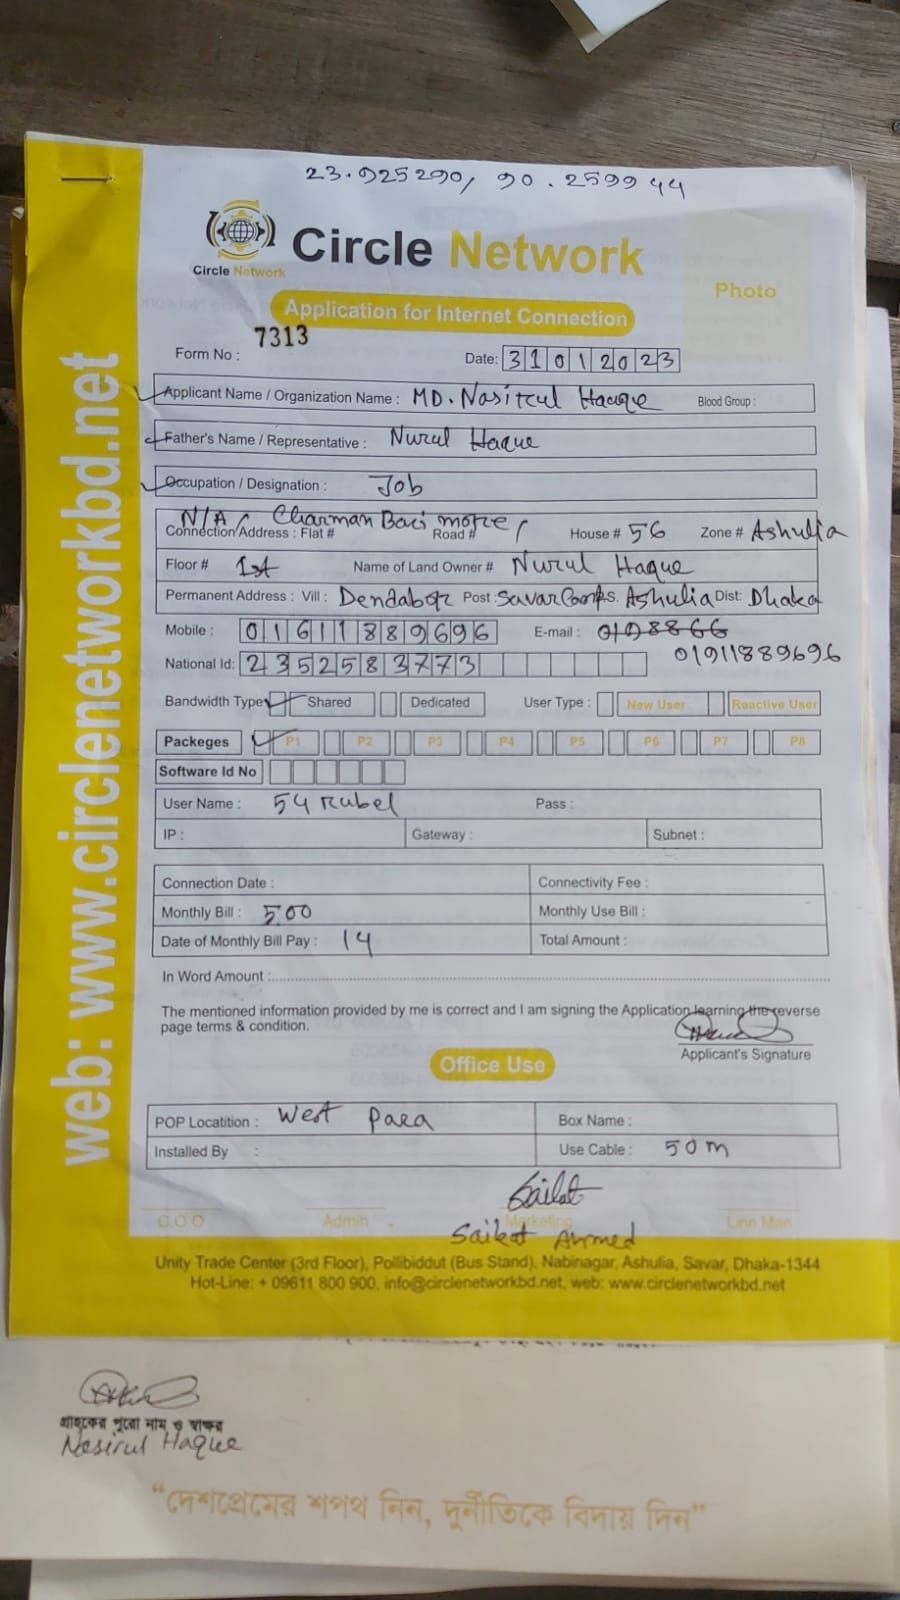 23.925290, 90.259944
Circle Network
Circle Network
Photo
Application for Internet Connection
Form No : 7313
Date: 31012023
Applicant Name / Organization Name : MD. Nasirul Haque Blood Group :
Father's Name / Representative : Nurul Haque
Occupation / Designation : Job
N/A, Charman Bari more,
Connection Address : Flat # Road # House # 56 Zone # Ashulia
Floor # 1st Name of Land Owner # Nurul Haque
Permanent Address : Vill : Dendabor Post : Savar Cant P.S. Ashulia Dist: Dhaka
Mobile : 01611889696 E-mail :
01911889696
National Id: 2352583773
Bandwidth Type Shared Dedicated User Type : New User Reactive User
Packeges P1 P2 P3 P4 P5 P6 P7 P8
Software Id No
User Name : 54 Rubel Pass :
IP : Gateway : Subnet :
Connection Date : Connectivity Fee :
Monthly Bill : 500 Monthly Use Bill :
Date of Monthly Bill Pay : 14 Total Amount :
In Word Amount :
The mentioned information provided by me is correct and I am signing the Application learning the reverse
page terms & condition.
Applicant's Signature
Office Use
POP Locatition : West Para Box Name :
Installed By : Use Cable : 50m
Saikat
C.O.O Admin Marketing Line Man
Saikat Ahmed
Unity Trade Center (3rd Floor), Pollibiddut (Bus Stand), Nabinagar, Ashulia, Savar, Dhaka-1344
Hot-Line: + 09611 800 900, info@circlenetworkbd.net, web: www.circlenetworkbd.net
web: www.circlenetworkbd.net
গ্রাহকের পুরো নাম ও স্বাক্ষর
Nasirul Haque
“দেশপ্রেমের শপথ নিন, দুর্নীতিকে বিদায় দিন”